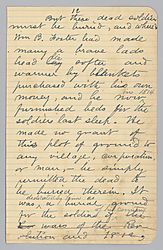 12
But these dead soldiers
must be buried, and where
Wm B. Foster had made
many a brave lads
head softer and
warmer by blankets
purchased with his own
money, and he
furnished beds for the
soldiers last sleep. He
made no grant of
this plot of ground to
any village, corporation
or man, he simply
the dead to
be buried therein. It
was, a burial ground
for the soldiers of the
wars of the Rev-
olution and 1812.